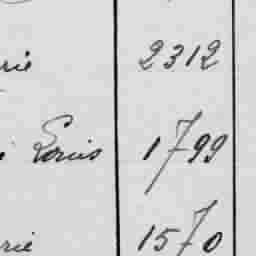 rie 2312
i Louis 1799
rie 1570